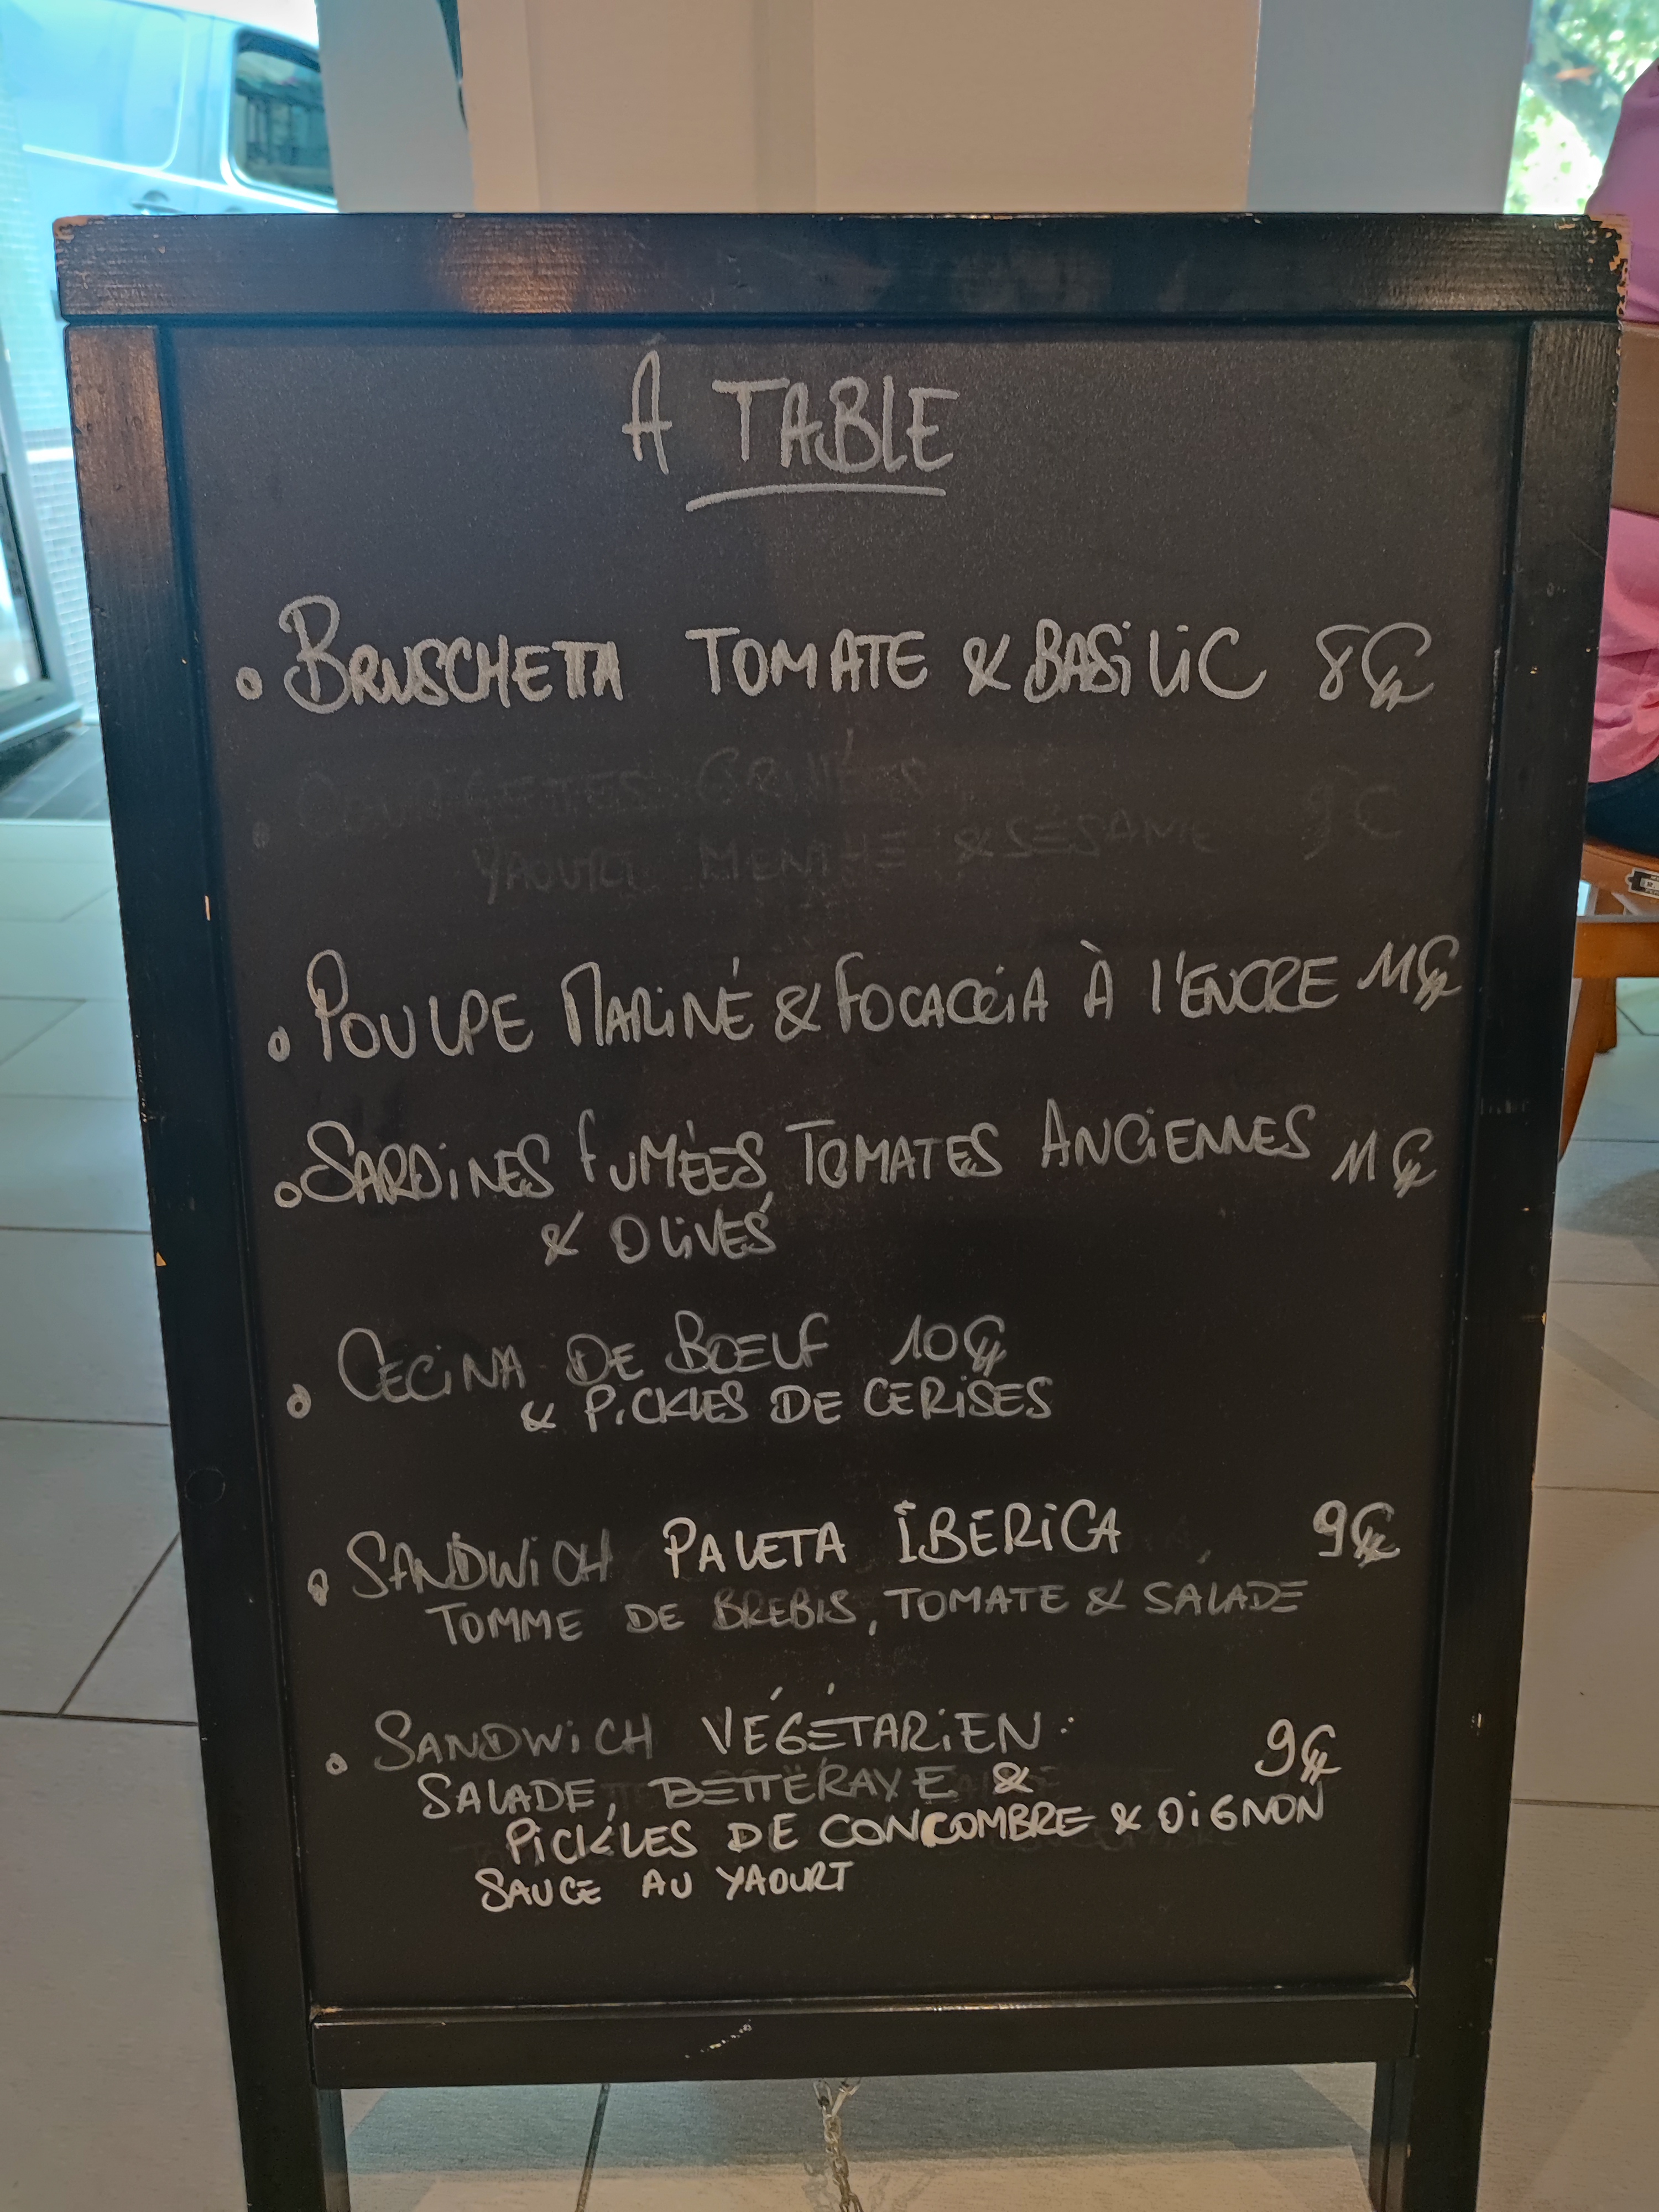 À TABLE
• BRUSCHETTA TOMATE & BASILIC 8€
• COURGETTES GRILLÉES 9€
YAOURT MENTHE & SÉSAME
• POULPE MARINÉ & FOCACCIA À L'ENCRE 11€
• SARDINES FUMÉES TOMATES ANCIENNES 11€
& OLIVES
• CECINA DE BŒUF 10€
& PICKLES DE CERISES
• SANDWICH PALETA IBERICA 9€
TOMME DE BREBIS, TOMATE & SALADE
• SANDWICH VÉGÉTARIEN : 9€
SALADE, BETTERAVE &
PICKLES DE CONCOMBRE & OIGNON
SAUCE AU YAOURT